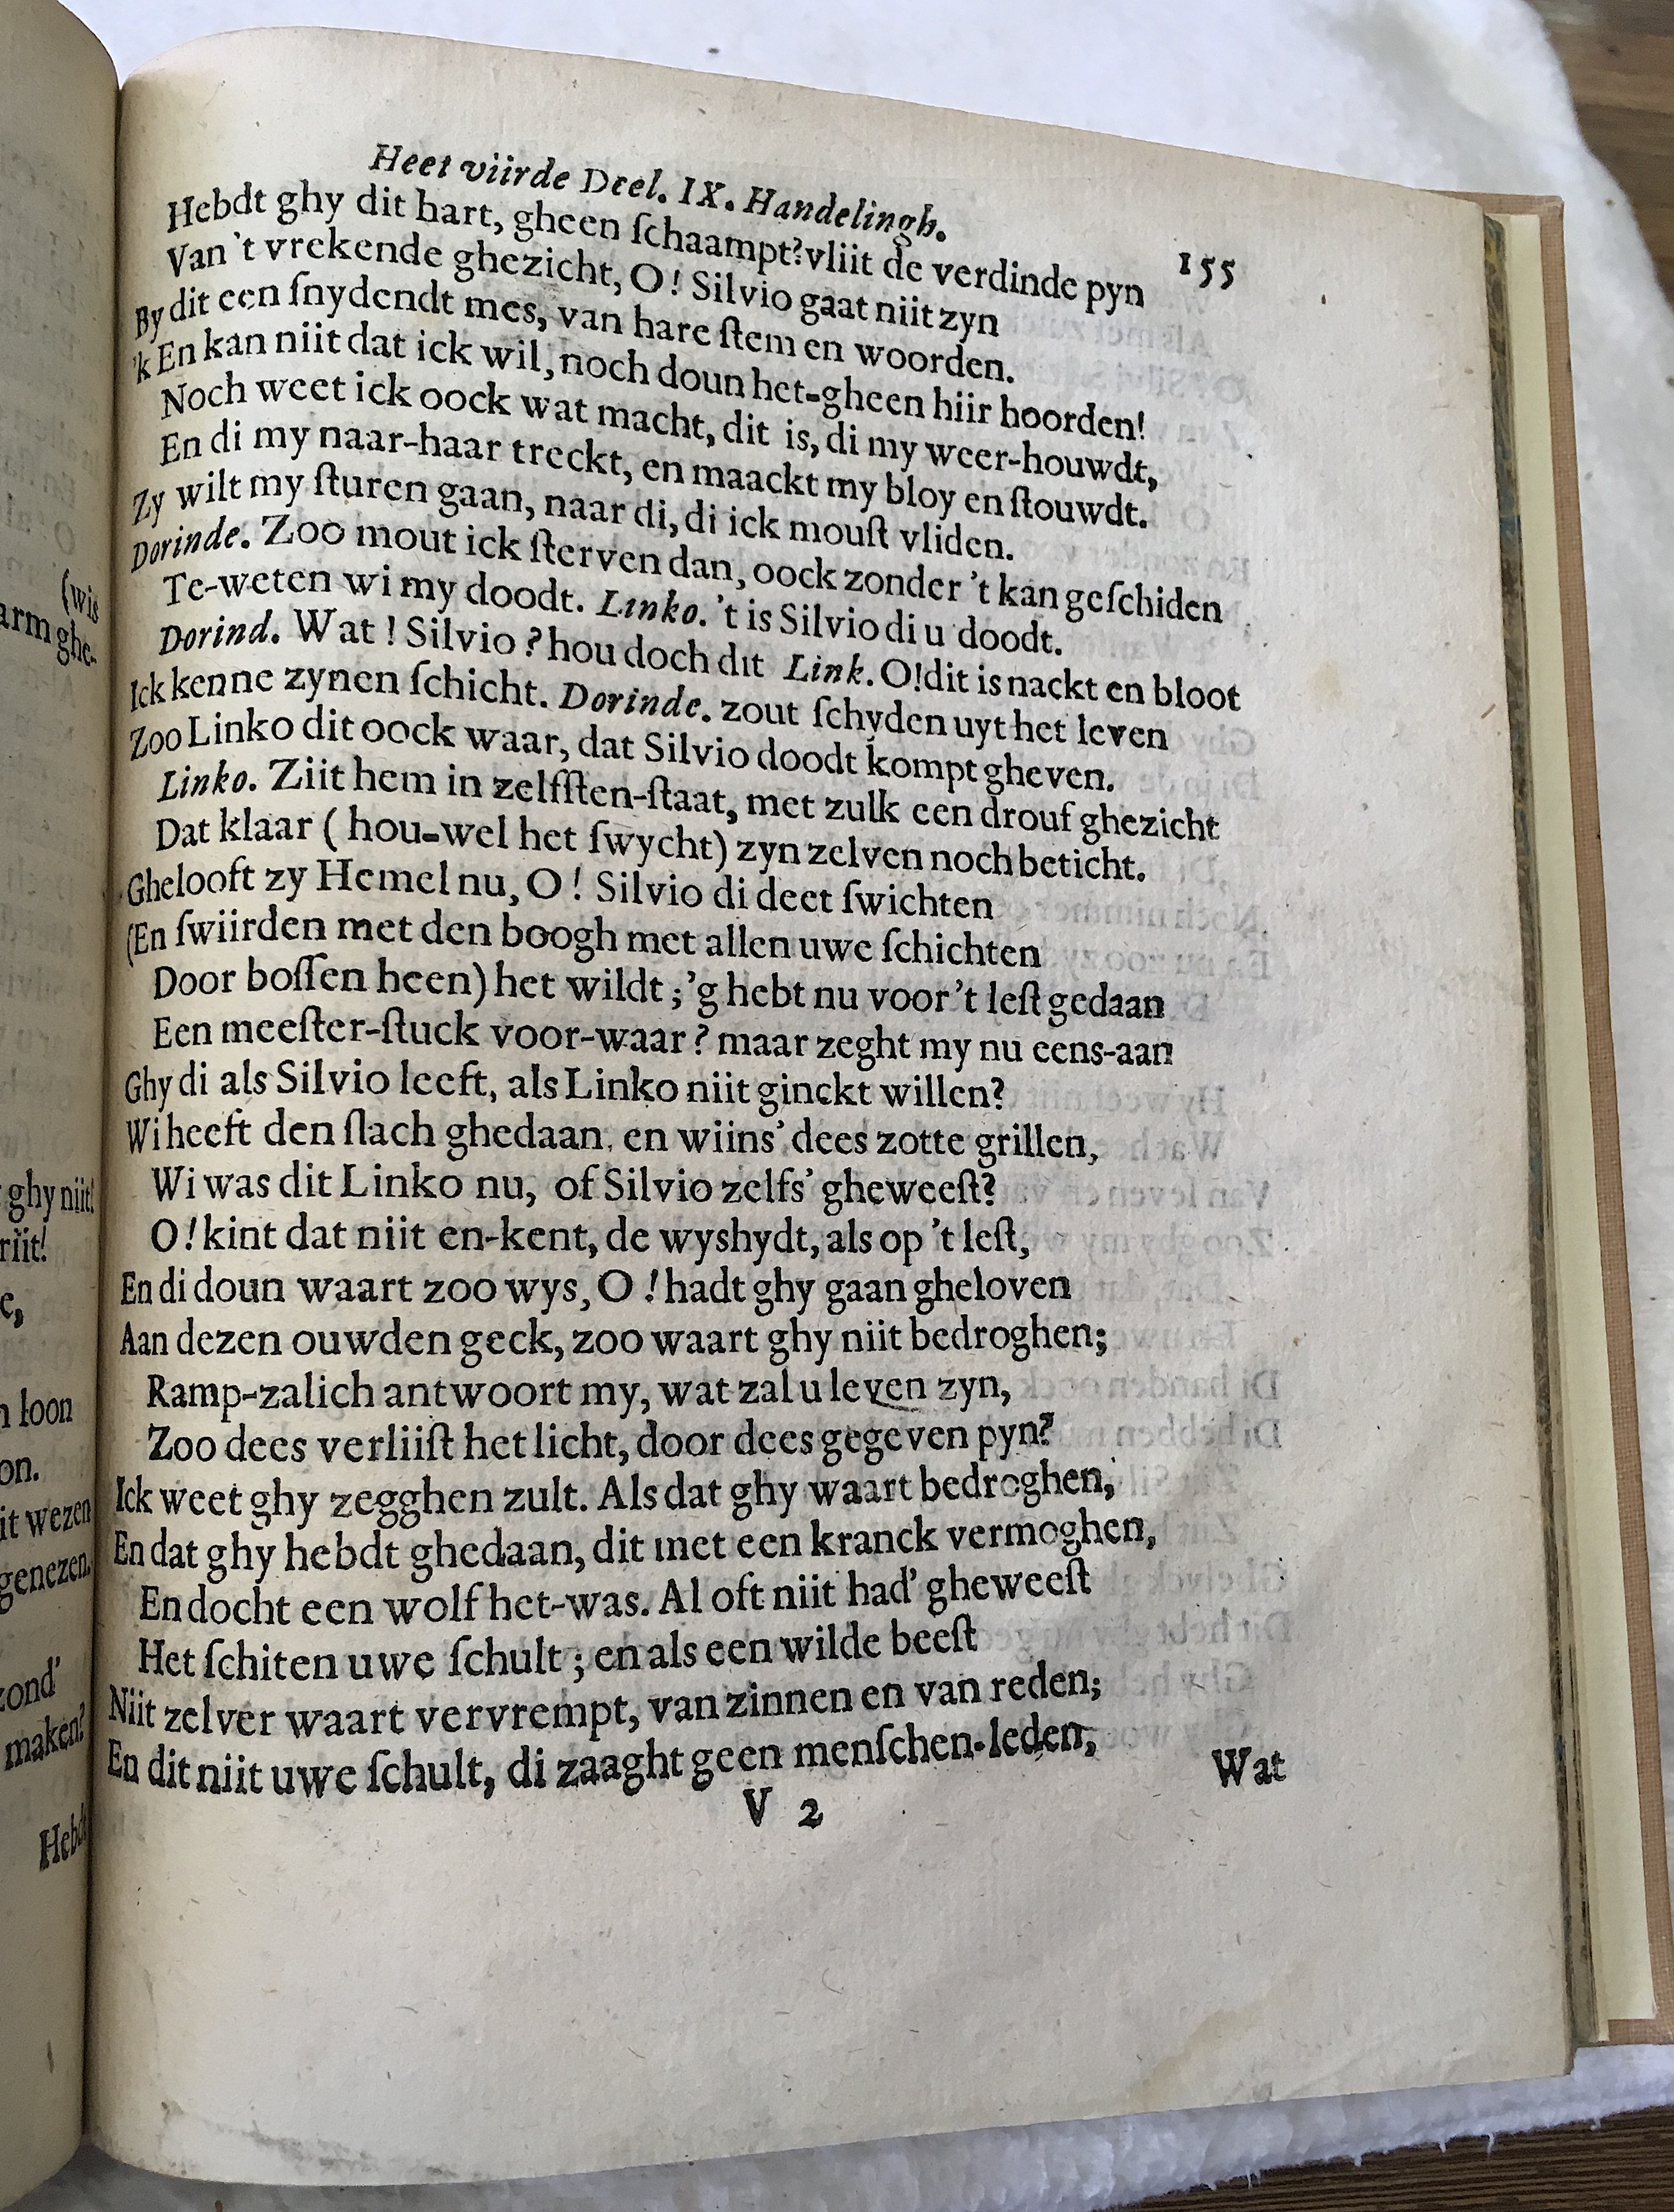 (wis
arm ghe-
ghy niit!
riit!
e,
n loon
on.
it wezen
genezen.
zond'
maken?
Hebdt
Heet viirde Deel. IX. Handelingh.
155
Hebdt ghy dit hart, gheen ſchaampt? vliit de verdinde pyn
Van 't vrekende ghezicht, O! Silvio gaat niit zyn
By dit een ſnydendt mes, van hare ſtem en woorden.
'k En kan niit dat ick wil, noch doun het-gheen hiir hoorden!
Noch weet ick oock wat macht, dit is, di my weer-houwdt,
En di my naar-haar treckt, en maackt my bloy en ſtouwdt.
Zy wilt my ſturen gaan, naar di, di ick mouſt vliden.
Dorinde. Zoo mout ick ſterven dan, oock zonder 't kan geſchiden
Te-weten wi my doodt. Linko. 't is Silvio di u doodt.
Dorind. Wat! Silvio? hou doch dit Link. O! dit is nackt en bloot
Ick kenne zynen ſchicht. Dorinde. zout ſchyden uyt het leven
Zoo Linko dit oock waar, dat Silvio doodt kompt gheven.
Linko. Ziit hem in zelfſten-ſtaat, met zulk een drouf ghezicht
Dat klaar (hou-wel het ſwycht) zyn zelven noch beticht.
Ghelooft zy Hemel nu, O! Silvio di deet ſwichten
(En ſwiirden met den boogh met allen uwe ſchichten
Door boſſen heen) het wildt; 'g hebt nu voor 't leſt gedaan
Een meeſter-ſtuck voor-waar? maar zeght my nu eens-aan
Ghy di als Silvio leeft, als Linko niit ginckt willen?
Wi heeft den ſlach ghedaan, en wiins' dees zotte grillen,
Wi was dit Linko nu, of Silvio zelfs' gheweeſt?
O! kint dat niit en-kent, de wyshydt, als op 't leſt,
En di doun waart zoo wys, O! hadt ghy gaan gheloven
Aan dezen ouwden geck, zoo waart ghy niit bedroghen;
Ramp-zalich antwoort my, wat zal u leven zyn,
Zoo dees verliiſt het licht, door dees gegeven pyn?
Ick weet ghy zegghen zult. Als dat ghy waart bedroghen,
En dat ghy hebdt ghedaan, dit met een kranck vermoghen,
En docht een wolf het-was. Al oft niit had' gheweeſt
Het ſchiten uwe ſchult; en als een wilde beeſt
Niit zelver waart vervrempt, van zinnen en van reden;
En dit niit uwe ſchult, di zaaght geen menſchen-leden,
V 2
Wat